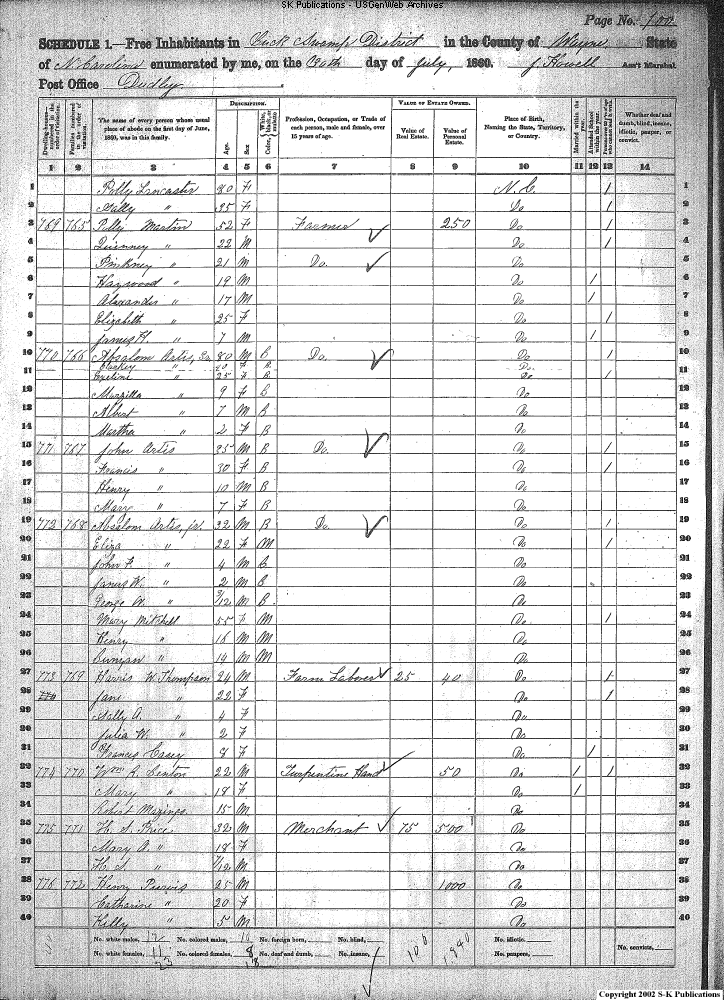 SK Publications - USGenWeb Archives
Page No. 100
SCHEDULE 1.—Free Inhabitants in Buck Swamp District in the County of Wayne State
of N. Carolina enumerated by me, on the 20th day of July, 1860. J. Howell Ass't Marshal
Post Office Dudley
Dwelling-houses—numbered in the order of visitation.
Families numbered in the order of visitation.
The name of every person whose usual place of abode on the first day of June, 1860, was in this family.
DESCRIPTION.
Age.
Sex.
Color, White, black, or mulatto.
Profession, Occupation, or Trade of each person, male and female, over 15 years of age.
VALUE OF ESTATE OWNED.
Value of Real Estate.
Value of Personal Estate.
Place of Birth, Naming the State, Territory, or Country.
Married within the year.
Attended School within the year.
Whether deaf and dumb, blind, insane, idiotic, pauper, or convict.
1 2 3 4 5 6 7 8 9 10 11 12 13 14
1 Polly Lancaster 80 F N.C. / 1
2 Sally " 35 F Do / 2
3 769 765 Polly Martin 52 F Farmer 250 Do / 3
4 Quinney " 22 M Do / 4
5 Pinkney " 21 M Do. Do 5
6 Haywood " 19 M Do / 6
7 Alexander " 17 M Do / 7
8 Elizabeth " 25 F Do / 8
9 James H. " 7 M Do / 9
10 770 766 Absalom Artis, Sr. 80 M B Do. Do / 10
11 " 40 F B Do 11
" 25 F B Do /
12 Marzilla " 9 F B Do 12
13 Albert " 7 M B Do 13
14 Martha " 2 F B Do 14
15 771 767 John Artis 35 M B Do. Do / 15
16 Francis " 30 F B Do / 16
17 Henry " 10 M B Do 17
18 Mary " 7 F B Do 18
19 772 768 Absalom Artis, jr. 32 M B Do Do / 19
20 Eliza " 22 F M Do / 20
21 John F. " 4 M B Do 21
22 James W. " 2 M B Do 22
23 George W. " 3/12 M B Do 23
24 Mary Mitchell 55 F M Do / 24
25 Henry " 16 M M Do 25
26 " 14 M M Do 26
27 773 769 Harris W. Thompson 24 M Farm Laborer 25 40 Do / 27
28 774 Jane " 22 F Do / 28
29 Sally A. " 4 F Do 29
30 Julia W. " 2 F Do 30
31 Frances Casey 8 F Do / 31
32 774 770 Wm R. Denton 22 M Turpentine Hand 50 Do / / 32
33 Mary " 18 F Do / 33
34 Robert 15 M Do 34
35 775 771 H. S. Price 32 M Merchant 75 500 Do 35
36 Mary A. " 18 F Do 36
37 H. S. " 7/12 M Do 37
38 776 772 Henry 25 M 1000 Do 38
39 Catharine " 20 F Do 39
40 Kelly " 5 M Do 40
No. white males, 12 No. colored males, 10 No. foreign born, No. blind, 100 1840 No. idiotic, No. convicts,
No. white females, 11 No. colored females, 8 No. deaf and dumb, No. insane, No. paupers,
23 18
Copyright 2002 S-K Publications